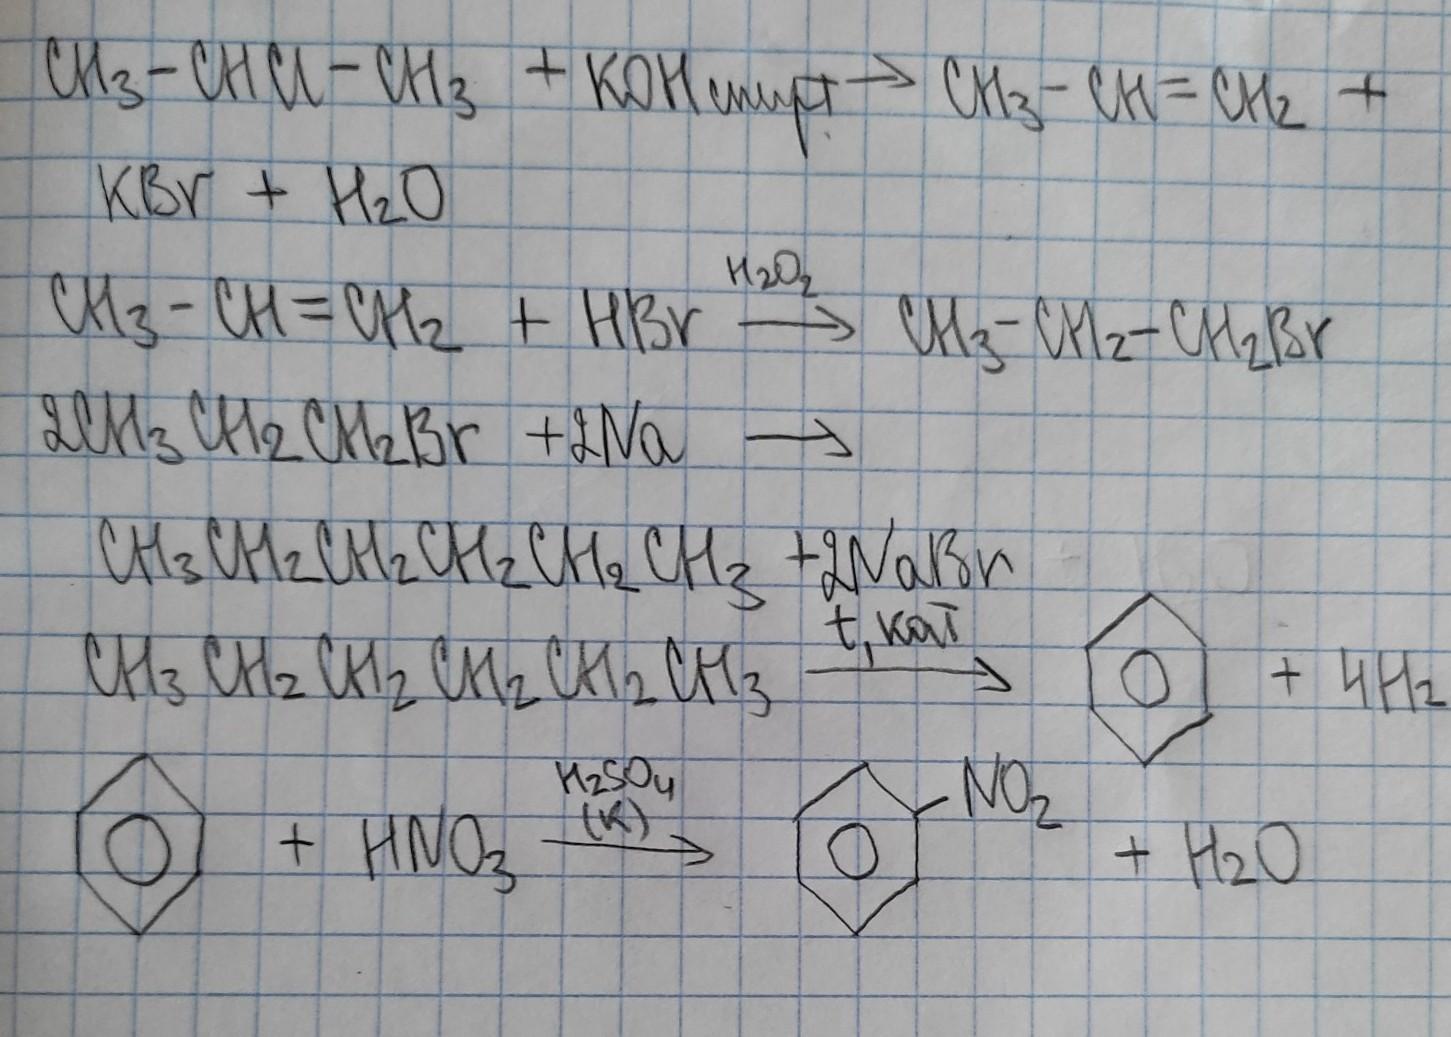 CH3-CHCl-CH3 + KOH спирт. → CH3-CH=CH2 +
KBr + H2O
CH3-CH=CH2 + HBr H2O2 → CH3-CH2-CH2Br
2CH3CH2CH2Br + 2Na →
CH3CH2CH2CH2CH2CH3 + 2NaBr
CH3CH2CH2CH2CH2CH3 t, кат → + 4H2
+ HNO3 H2SO4 (к) → NO2 + H2O